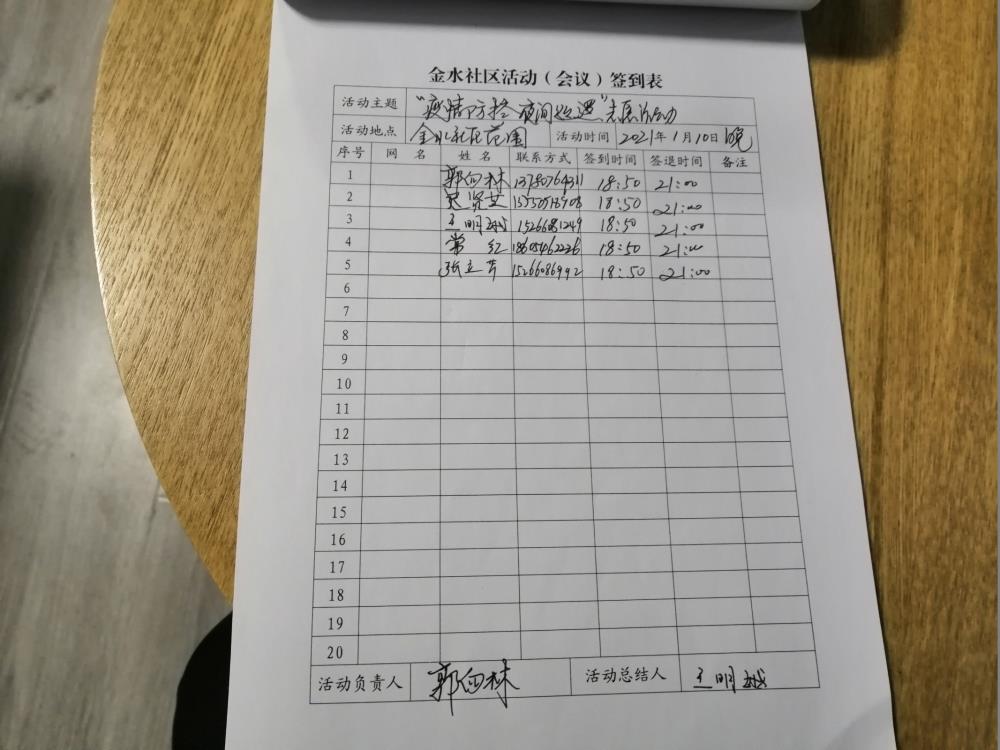 金水社区活动（会议）签到表
活动主题 "疫情防控夜间巡逻"志愿活动
活动地点 金水社区范围 活动时间 2021年1月10日晚
序号 网 名 姓 名 联系方式 签到时间 签退时间 备注
1 郭向林 18:50 21:00
2 18:50 21:00
3 王明越 15266081249 18:50 21:00
4 常红 18:50 21:00
5 张立芳 15266086992 18:50 21:00
6
7
8
9
10
11
12
13
14
15
16
17
18
19
20
活动负责人 郭向林 活动总结人 王明越